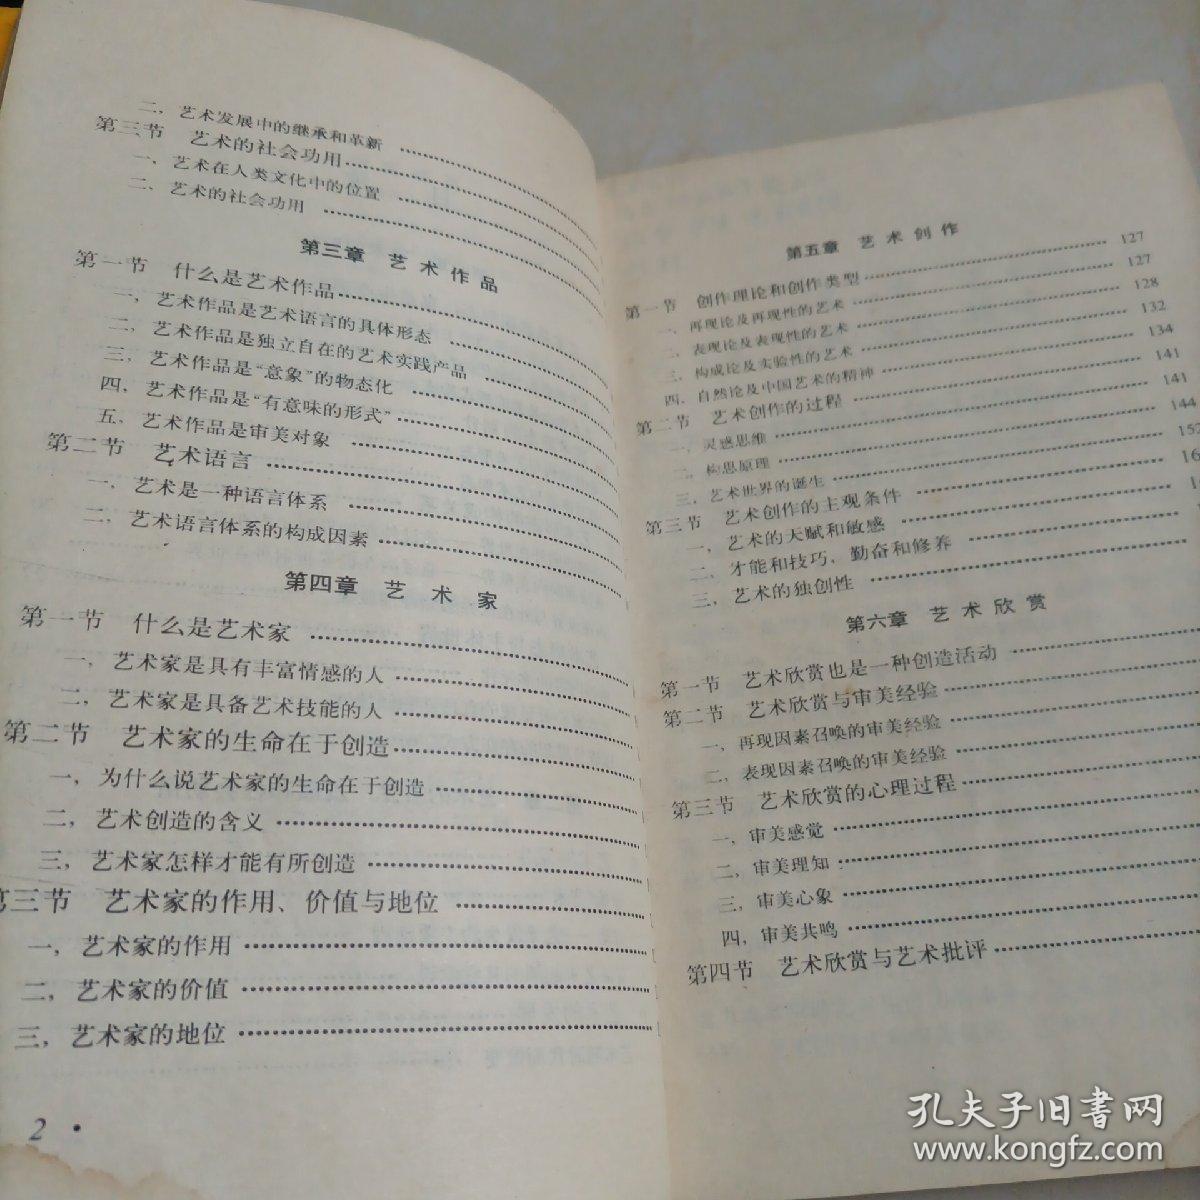 二，艺术发展中的继承和革新
第三节 艺术的社会功用
一，艺术在人类文化中的位置
二，艺术的社会功用
第三章 艺术作品
第一节 什么是艺术作品
一，艺术作品是艺术语言的具体形态
二，艺术作品是独立自在的艺术实践产品
三，艺术作品是“意象”的物态化
四，艺术作品是“有意味的形式”
五，艺术作品是审美对象
第二节 艺术语言
一，艺术是一种语言体系
二，艺术语言体系的构成因素
第四章 艺术家
第一节 什么是艺术家
一，艺术家是具有丰富情感的人
二，艺术家是具备艺术技能的人
第二节 艺术家的生命在于创造
一，为什么说艺术家的生命在于创造
二，艺术创造的含义
三，艺术家怎样才能有所创造
第三节 艺术家的作用、价值与地位
一，艺术家的作用
二，艺术家的价值
三，艺术家的地位
2 ·
第五章 艺术创作
第一节 创作理论和创作类型 127
一，再现论及再现性的艺术 127
二，表现论及表现性的艺术 128
三，构成论及实验性的艺术 132
四，自然论及中国艺术的精神 134
第二节 艺术创作的过程 141
一，灵感思维 141
二，构思原理 144
三，艺术世界的诞生 152
第三节 艺术创作的主观条件 16
一，艺术的天赋和敏感 1
二，才能和技巧，勤奋和修养
三，艺术的独创性
第六章 艺术欣赏
第一节 艺术欣赏也是一种创造活动
第二节 艺术欣赏与审美经验
一，再现因素召唤的审美经验
二，表现因素召唤的审美经验
第三节 艺术欣赏的心理过程
一，审美感觉
二，审美理知
三，审美心象
四，审美共鸣
第四节 艺术欣赏与艺术批评
孔夫子旧书网
www.kongfz.com